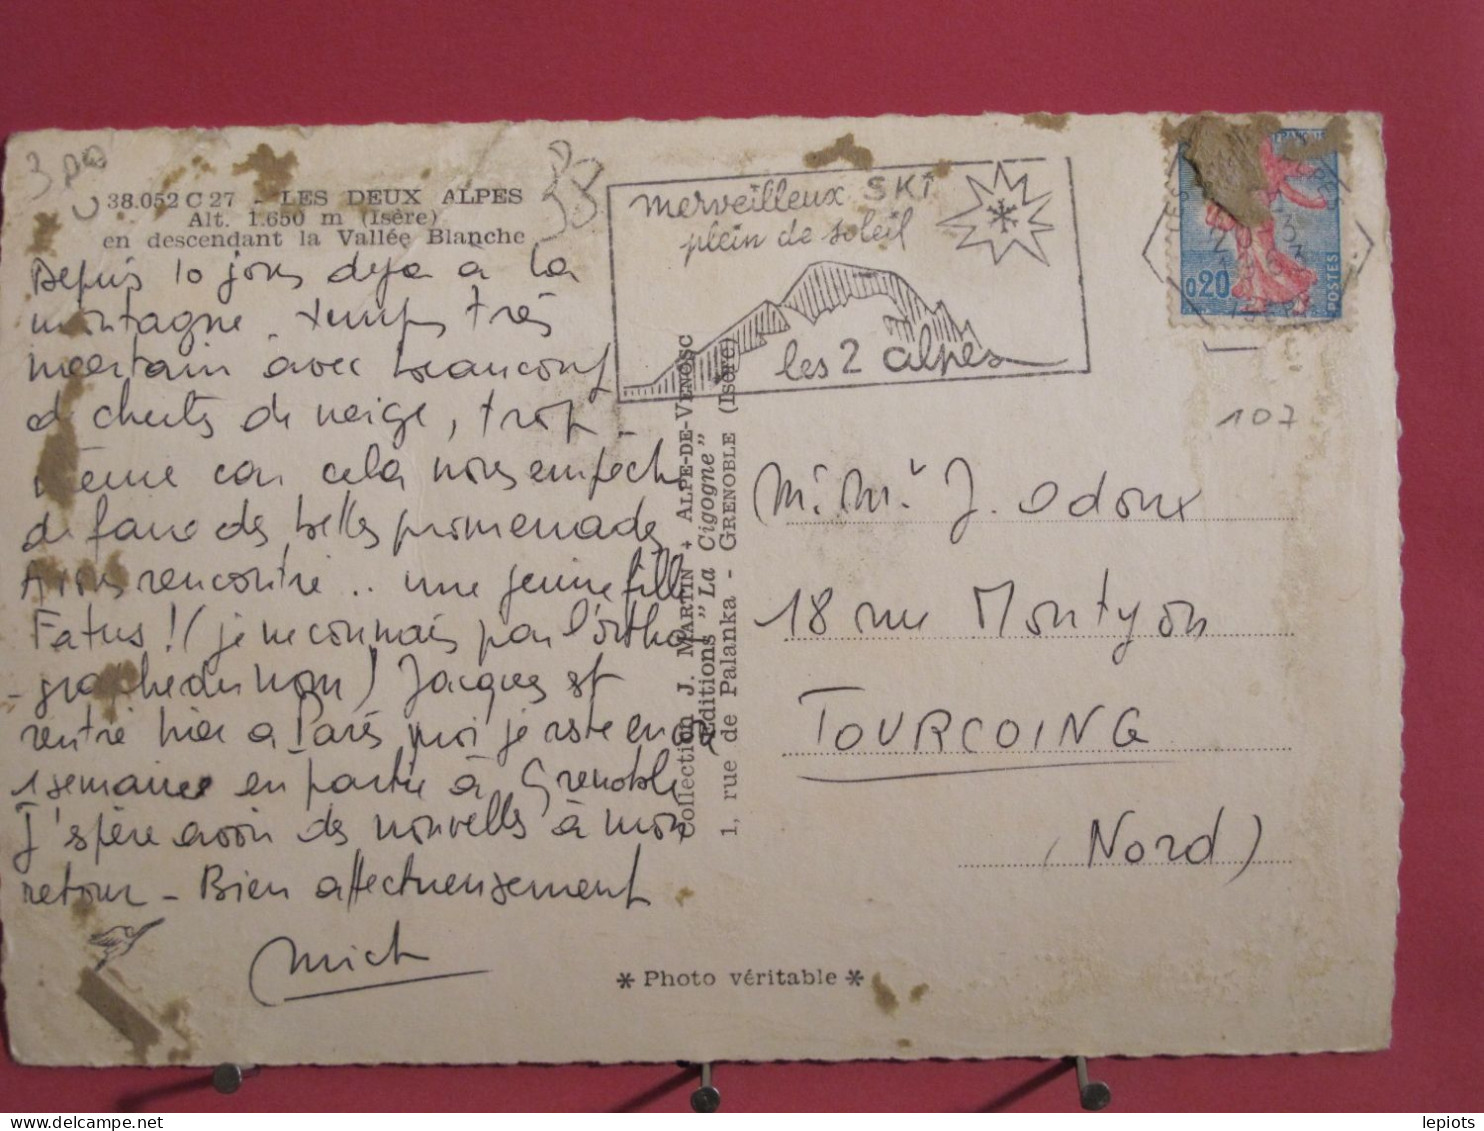 38.052 C 27 - LES DEUX ALPES
Alt. 1.650 m (Isère)
en descendant la Vallée Blanche
Depuis 10 jours deja à la
montagne. temps très
incertain avec beaucoup
de chutes de neige, trop
même car cela nous empêche
de faire des belles promenades
Avons rencontré .. une jeune fille
Fatus ! (je ne connais pas l'ortho
-graphe du nom) Jacques est
rentré hier a Paris moi je reste encore
1 semaine en partie à Grenoble
J'espère avoir des nouvelles à mon
retour - Bien affectueusement
Mich
merveilleux SKI
plein de soleil
les 2 alpes
0,20
POSTES
107
38
Collection J. MARTIN + ALPE-DE-VENOSC
Editions "La Cigogne"
1, rue de Palanka - GRENOBLE (Isère)
Mr. Mme J. Odoux
18 rue Montyon
TOURCOING
(Nord)
* Photo véritable *
lepiots
www.delcampe.net